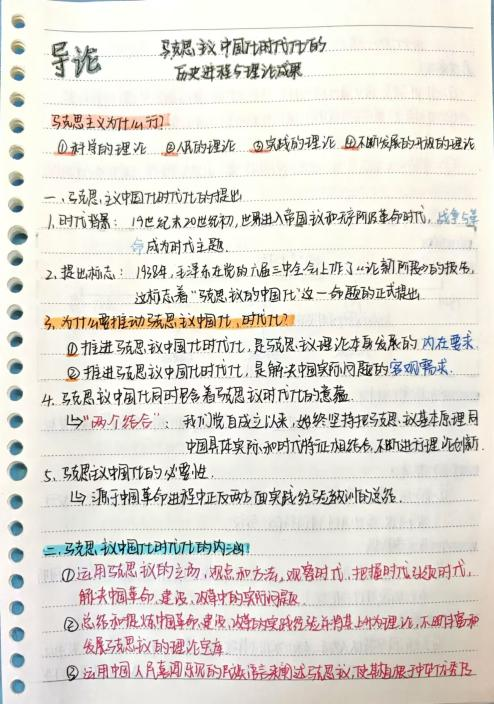 导论
马克思主义中国化时代化的
历史进程与理论成果
马克思主义为什么行?
①科学的理论 ②人民的理论 ③实践的理论 ④不断发展的开放的理论
一、马克思主义中国化时代化的提出
1.时代背景: 19世纪末20世纪初,世界进入帝国主义和无产阶级革命时代,战争与革
命成为时代主题.
2.提出标志: 1938年,毛泽东在党的六届六中全会上作了《论新阶段》的报告,
这标志着"马克思主义的中国化"这一命题的正式提出
3.为什么要推动马克思主义中国化、时代化?
①推进马克思主义中国化时代化,是马克思主义理论本身发展的内在要求.
②推进马克思主义中国化时代化,是解决中国实际问题的客观需求.
4.马克思主义中国化同时包含着马克思主义时代化的意蕴
↳"两个结合": 我们党自成立以来,始终坚持把马克思主义基本原理同
中国具体实际和时代特征相结合,不断进行理论创新.
5.马克思主义中国化的必要性.
↳源于中国革命进程中正反两方面实践经验教训的总结.
二.马克思主义中国化时代化的内涵
①运用马克思主义的立场、观点和方法,观察时代、把握时代、引领时代,
解决中国革命、建设、改革中的实际问题.
②总结和提炼中国革命、建设、改革的实践经验并将其上升为理论,不断丰富和
发展马克思主义的理论宝库.
③运用中国人民喜闻乐见的民族语言来阐述马克思主义,使其植根于中华优秀